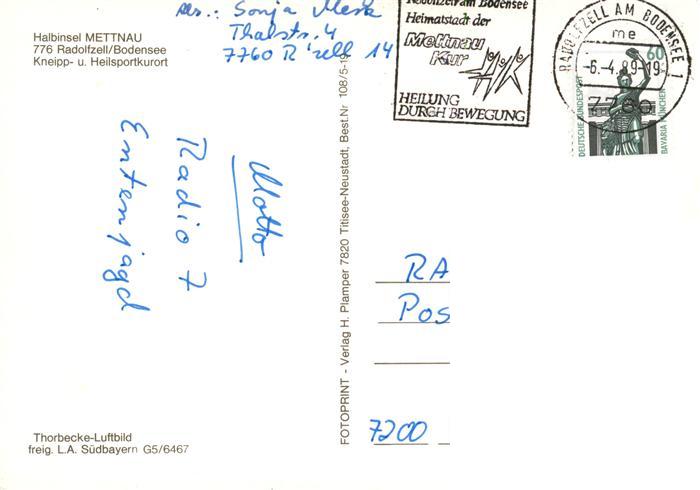 Halbinsel METTNAU
776 Radolfzell/Bodensee
Kneipp- u. Heilsportkurort
Abs.: Sonja Merk
Thalstr. 4
7760 R'zell 14
Radolfzell am Bodensee
Heimatstadt der
Mettnau
Kur
HEILUNG
DURCH BEWEGUNG
RADOLFZELL AM BODENSEE 1
me
-6.-4.89-19
7760
60
DEUTSCHE BUNDESPOST
BAVARIA MÜNCHEN
Motto
Radio 7
Entenjagd
FOTOPRINT - Verlag H. Plamper 7820 Titisee-Neustadt, Best.Nr 108/5-19
RA
Pos
7200
Thorbecke-Luftbild
freig. L.A. Südbayern G5/6467